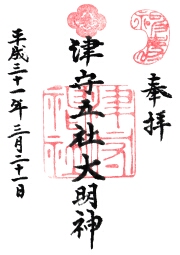 奉拝
津守五社大明神
津守神社
平成三十一年三月二十一日